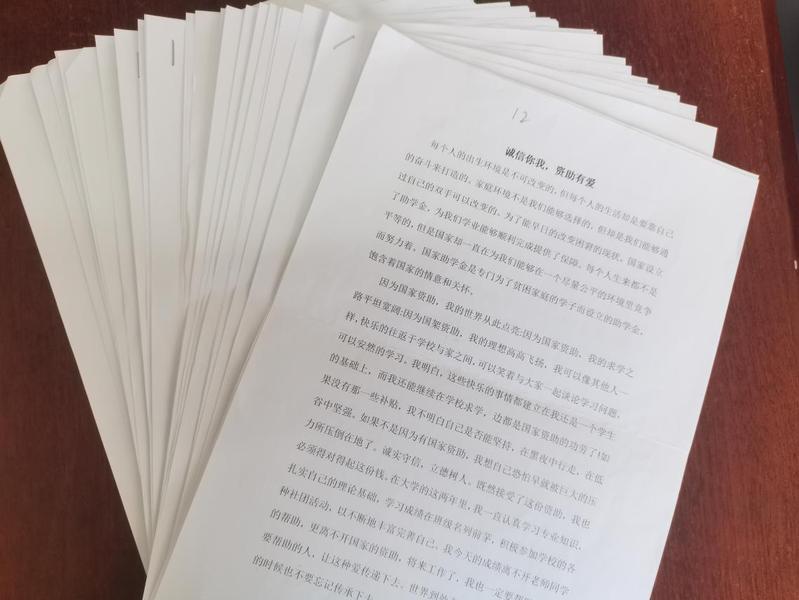 12
诚信你我，资助有爱
每个人的出生环境是不可改变的，但每个人的生活却是要靠自己
的奋斗来打造的。家庭环境不是我们能够选择的，但却是我们能够通
过自己的双手可以改变的。为了能早日的改变困窘的现状，国家设立
了助学金，为我们学业能够顺利完成提供了保障。每个人生来都不是
平等的，但是国家却一直在为我们能够在一个尽量公平的环境里竞争
而努力着。国家助学金是专门为了贫困家庭的学子而设立的助学金，
饱含着国家的情意和关怀。
因为国家资助，我的世界从此点亮;因为国家资助，我的求学之
路平坦宽阔;因为国架资助，我的理想高高飞扬，我可以像其他人一
样，快乐的往返于学校与家之间，可以笑着与大家一起谈论学习问题，
可以安然的学习。我明白，这些快乐的事情都建立在我还是一个学生
的基础上，而我还能继续在学校求学，边都是国家资助的功劳了!如
果没有那一些补贴，我不明白自己是否能坚持，在黑夜中行走，在低
谷中坚强。如果不是因为有国家资助，我想自己恐怕早就被巨大的压
力所压倒在地了。诚实守信，立德树人。既然接受了这份资助，我也
必须得对得起这份钱。在大学的这两年里，我一直认真学习专业知识，
扎实自己的理论基础，学习成绩在班级名列前茅，积极参加学校的各
种社团活动，以不断地丰富完善自己，我今天的成绩离不开老师同学
的帮助，更离不开国家的资助，将来工作了，我也一定要帮
要帮助的人，让这种爱传递下去。世界到
的时候也不要忘记传承下去